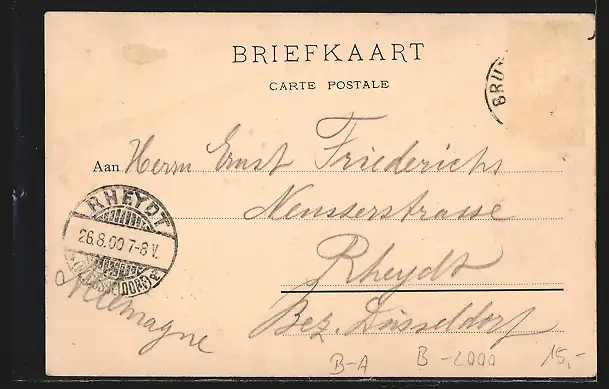 BRIEFKAART
CARTE POSTALE
BRU
Aan Herrn Ernst Friederichs
Neusserstrasse
RHEYDT
26.8.00 7-8 V.
Rheydt
Allemagne
Bez. Düsseldorf
B-A B-2000 15,-